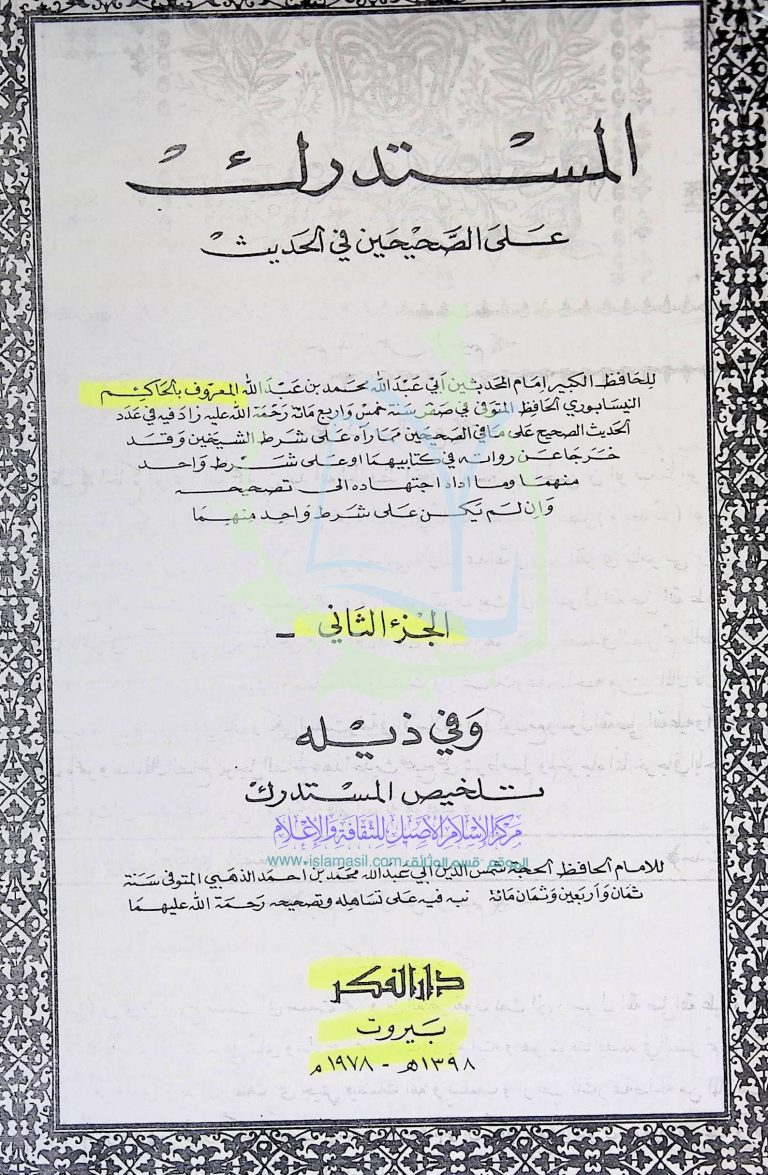 المستدرك
على الصحيحين في الحديث
للحافظ الكبير امام المحدثين ابي عبد الله محمد بن عبد الله المعروف بالحاكم
النيسابوري الحافظ المتوفى في صفر سنة خمس واربع مائة رحمة الله عليه زاد فيه في عدد
الحديث الصحيح على ما في الصحيحين مما راه على شرط الشيخين وقد
خرجا عن رواته في كتابيهما او على شرط واحد
منهما وما اداه اجتهاده الى تصحيحه
وان لم يكن على شرط واحد منهما
الجزء الثاني –
وفي ذيله
تلخيص المستدرك
مركز الإسلام الأصيل للثقافة والإعلام
الموقع- قسم الوثائق www.islamasil.com
للامام الحافظ الحجة شمس الدين ابي عبد الله محمد بن احمد الذهبي المتوفى سنة
ثمان واربعين وثمان مائة نبه فيه على تساهله وتصحيحه رحمة الله عليهما
دار الفكر
بيروت
١٣٩٨هـ - ١٩٧٨م